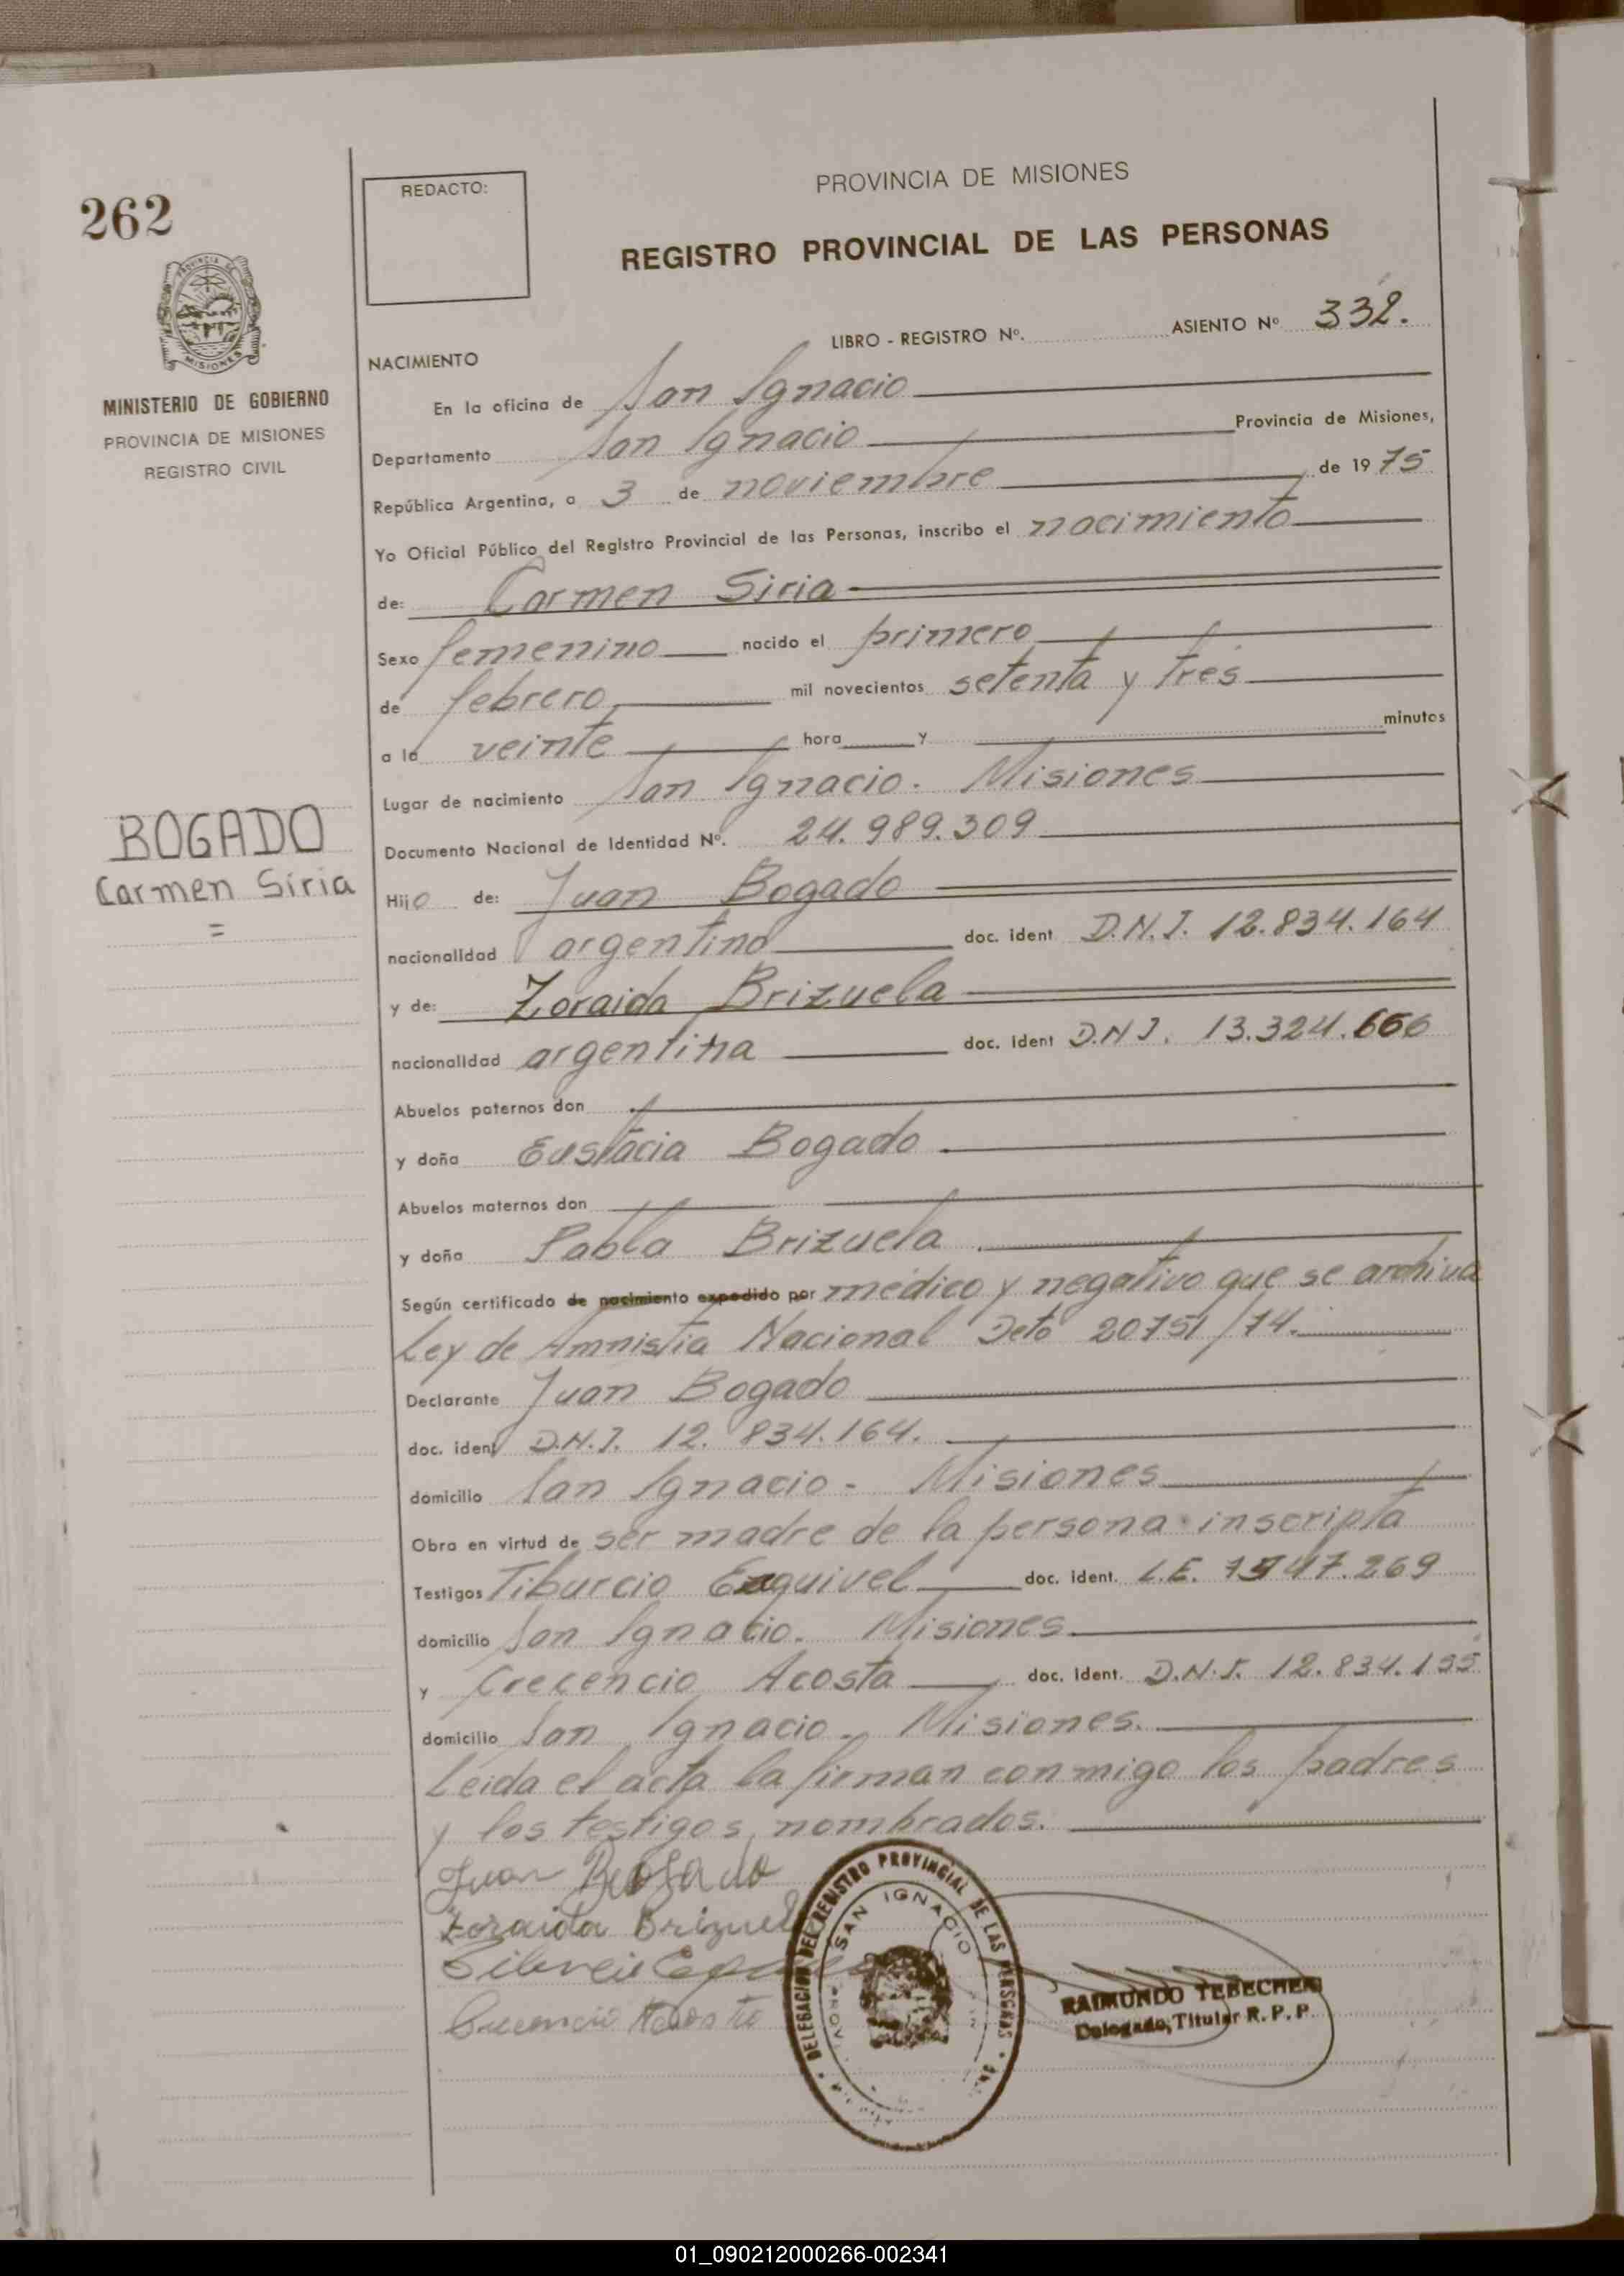 262
PROVINCIA DE MISIONES
MINISTERIO DE GOBIERNO
PROVINCIA DE MISIONES
REGISTRO CIVIL
BOGADO
Carmen Siria
=
REDACTO:
PROVINCIA DE MISIONES
REGISTRO PROVINCIAL DE LAS PERSONAS
LIBRO - REGISTRO Nº. ASIENTO Nº 332.
NACIMIENTO
En la oficina de San Ignacio
Departamento San Ignacio Provincia de Misiones,
República Argentina, a 3 de noviembre de 1975
Yo Oficial Público del Registro Provincial de las Personas, inscribo el nacimiento
de: Carmen Siria
Sexo femenino nacido el primero
de febrero mil novecientos setenta y tres
a la veinte hora y minutos
Lugar de nacimiento San Ignacio. Misiones
Documento Nacional de Identidad Nº. 24.989.309
Hijo de: Juan Bogado
nacionalidad argentino doc. ident D.N.I. 12.834.164
y de: Zoraida Brizuela
nacionalidad argentina doc. ident D.N.I. 13.324.666
Abuelos paternos don
y doña Eustacia Bogado
Abuelos maternos don
y doña Pabla Brizuela
Según certificado de nacimiento expedido por médico y negativo que se archiva
Ley de Amnistia Nacional Deto 20751/74.
Declarante Juan Bogado
doc. ident D.N.I. 12.834.164.
domicilio San Ignacio - Misiones
Obra en virtud de ser madre de la persona inscripta
Testigos Tiburcio Esquivel doc. ident. L.E.
domicilio San Ignacio. Misiones
y Crecencio Acosta doc. ident. D.N.I. 12.834.155
domicilio San Ignacio. Misiones.
Leida el acta la firman conmigo los padres
y los testigos nombrados.
Juan Bogado
Zoraida Brizuel
DELEGACION DEL REGISTRO PROVINCIAL DE LAS PERSONAS
SAN IGNACIO
RAIMUNDO TEBECHERI
Delegado, Titular R. P. P.
01_090212000266-002341